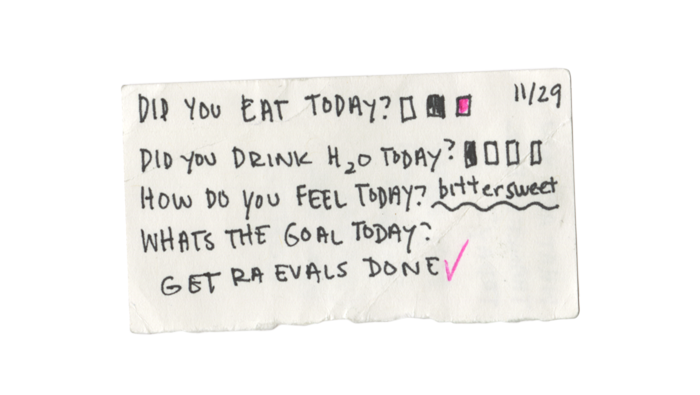 DID YOU EAT TODAY? 11/29
DID YOU DRINK H₂O TODAY?
HOW DO YOU FEEL TODAY? bittersweet
WHATS THE GOAL TODAY?
GET RA EVALS DONE ✓